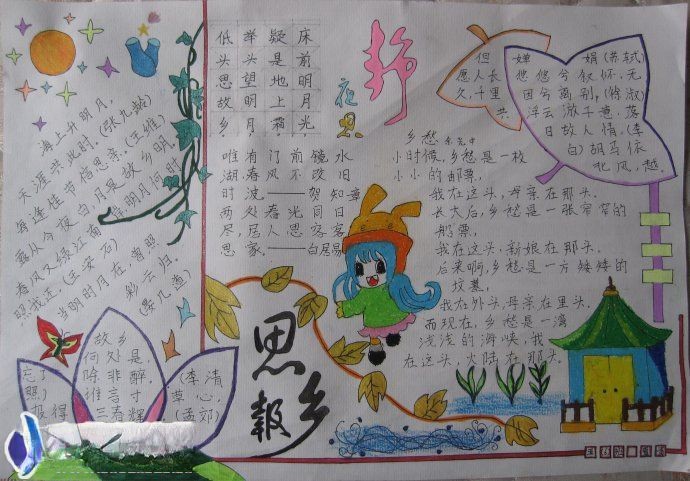 海上升明月,
天涯共此时。(张九龄)
每逢佳节倍思亲。(王维)
露从今夜白,月是故乡明
春风又绿江南岸,明月何时
照我还。(王安石)
当明时月在,曾照
彩云归。
(晏几道)
床前明月光
疑是地上霜
举头望明月
低头思故乡
静
夜
思
唯有门前镜水
湖春风不改旧
时波。——贺知章
两处春光同日
尽,居人思客客
思家。——白居易
乡愁 余光中
小时候,乡愁是一枚
小小的邮票,
我在这头,母亲在那头.
长大后,乡愁是一张窄窄的
船票,
我在这头,新娘在那头.
后来啊,乡愁是一方矮矮的
坟墓,
我在外头,母亲在里头.
而现在,乡愁是一湾
浅浅的海峡,我
在这头,大陆在那头.
但
愿人长
久,千里
共
婵娟(苏轼)
悠悠兮叙怀,无
因兮离别。(徐淑)
浮云游子意,落
日故人情。(李
白)胡马依
北风,越
故乡
何处是,
忘了除非醉。(李清
照)谁言寸草心,
报得三春辉(孟郊)
思乡报